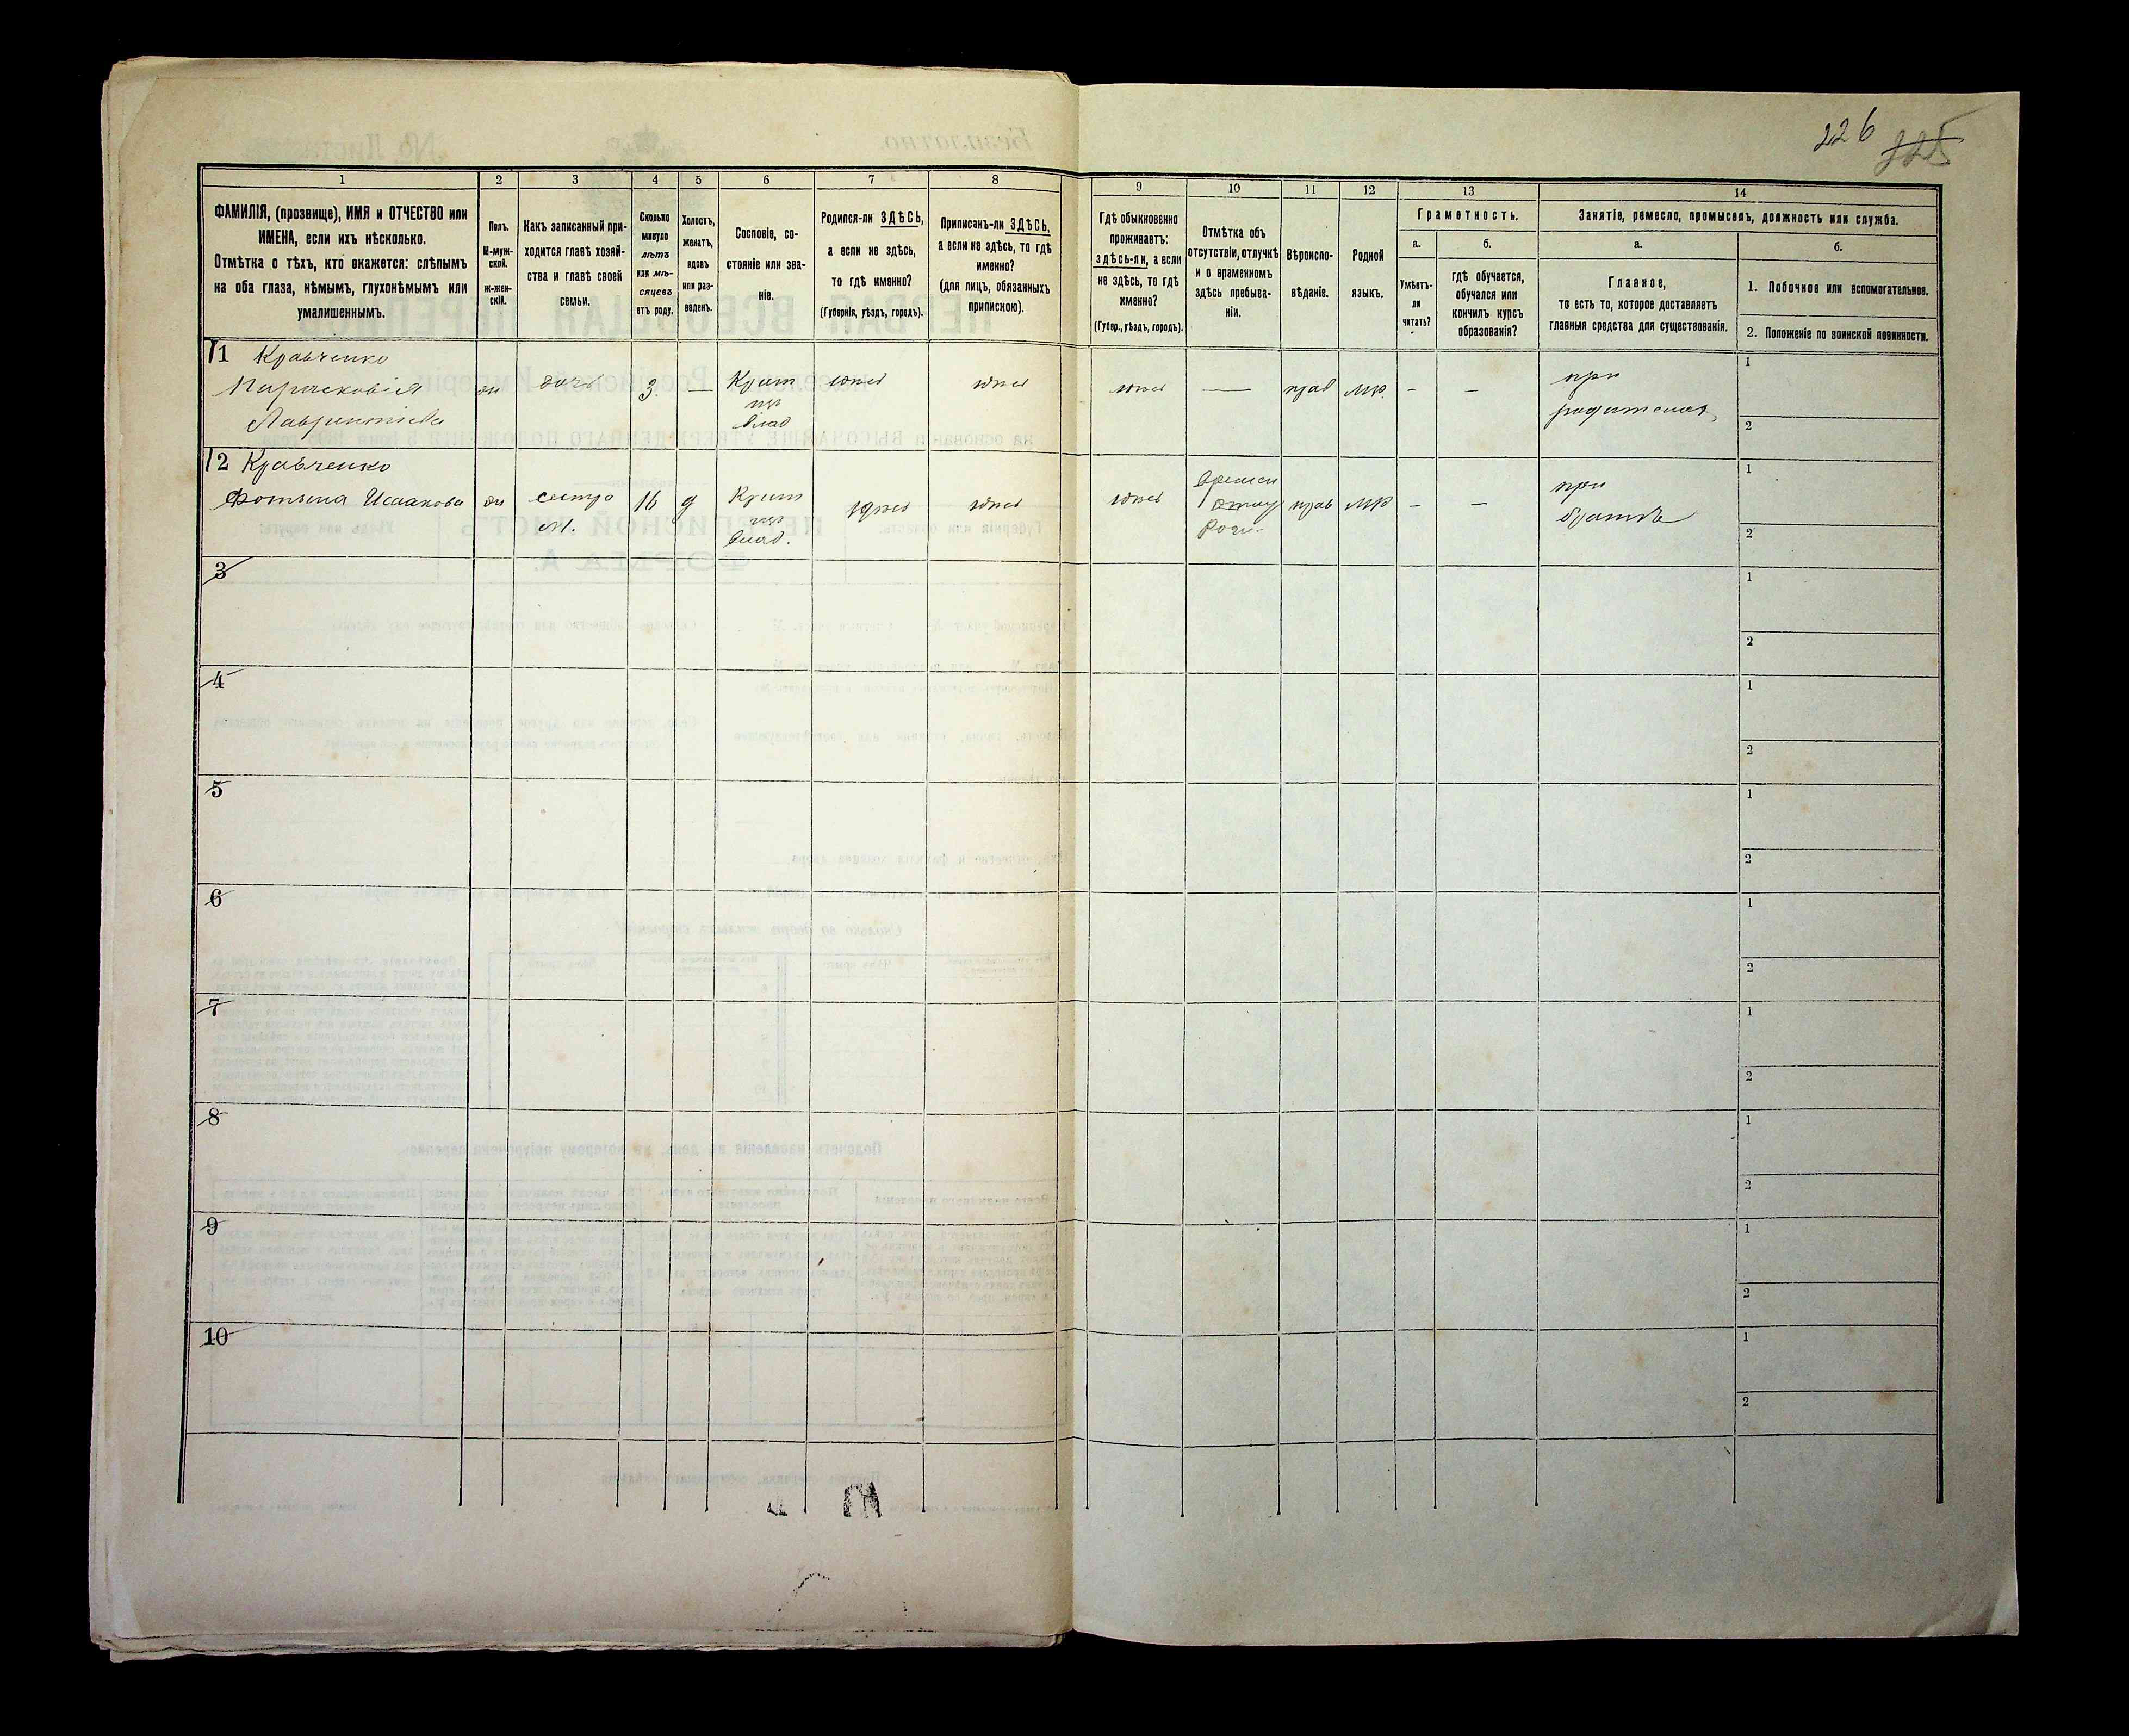 226 225
1
2
3
4
5
6
7
8
ФАМИЛІЯ, (прозвище), ИМЯ и ОТЧЕСТВО или
ИМЕНА, если ихъ нѣсколько.
Отмѣтка о тѣхъ, кто окажется: слѣпымъ
на оба глаза, нѣмымъ, глухонѣмымъ или
умалишеннымъ.
Полъ.
М-муж-
ской.
ж-жен-
скій.
Какъ записанный при-
ходится главѣ хозяй-
ства и главѣ своей
семьи.
Сколько
минуло
лѣтъ
или мѣ-
сяцевъ
отъ роду.
Холостъ,
женатъ,
вдовъ
или раз-
веденъ.
Сословіе, со-
стояніе или зва-
ніе.
Родился-ли ЗДѢСЬ,
а если не здѣсь,
то гдѣ именно?
(Губернія, уѣздъ, городъ).
Приписанъ-ли ЗДѢСЬ,
а если не здѣсь, то гдѣ
именно?
(для лицъ, обязанныхъ
припискою).
9
10
11
12
13
14
Гдѣ обыкновенно
проживаетъ:
здѣсь-ли, а если
не здѣсь, то гдѣ
именно?
(Губер., уѣздъ, городъ).
Отмѣтка объ
отсутствіи, отлучкѣ
и о временномъ
здѣсь пребыва-
ніи.
Вѣроиспо-
вѣданіе.
Родной
языкъ.
Грамотность.
а.
б.
Умѣетъ-
ли
читать?
гдѣ обучается,
обучался или
кончилъ курсъ
образованія?
Занятіе, ремесло, промыселъ, должность или служба.
а.
б.
Главное,
то есть то, которое доставляетъ
главныя средства для существованія.
1. Побочное или вспомогательное.
2. Положеніе по воинской повинности.
1 Кравченко
Парасковія
Лаврентіева
дочь
3
—
Крест
влад
здѣсь
здѣсь
здѣсь
—
прав
мр.
-
-
при
родителях
1
2
2 Кравченко
Фотина Исаакова
сестра
16
д
Крест
влад.
здѣсь
здѣсь
здѣсь
прав
мр
-
-
при
братѣ
1
2
3
1
2
4
1
2
5
1
2
6
1
2
7
1
2
8
1
2
9
1
2
10
1
2